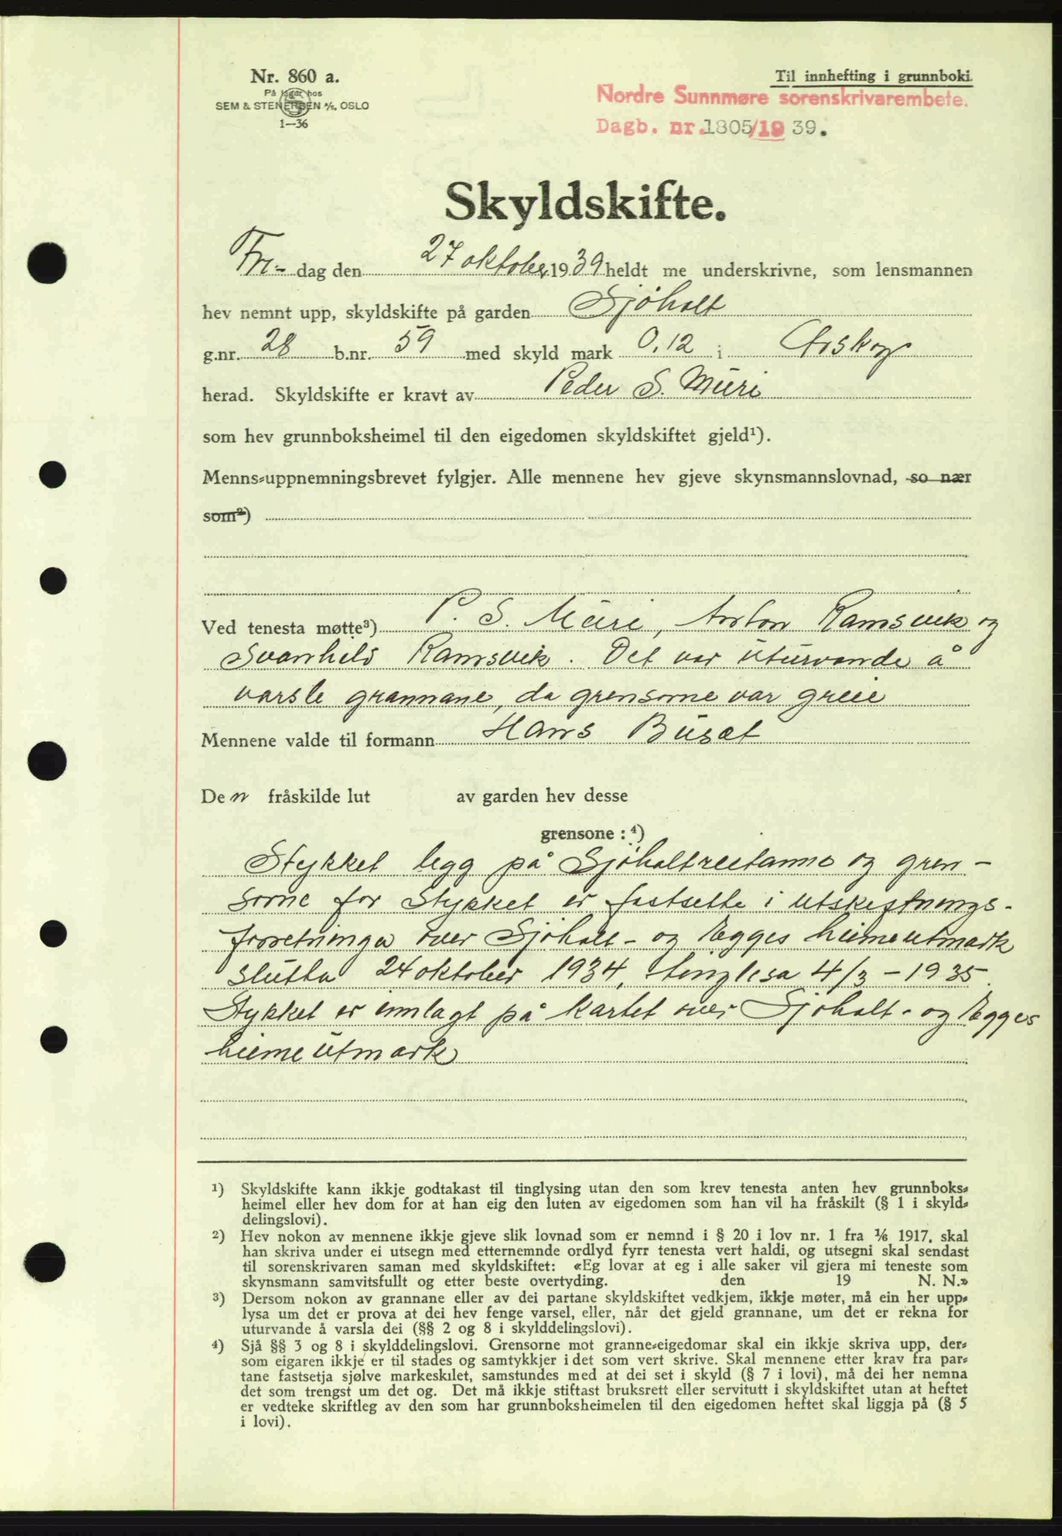 Nr. 860 a.
På lager hos
SEM & STENERSEN A/S, OSLO
1—36
Til innhefting i grunnboki.
Nordre Sunnmøre sorenskrivarembete.
Dagb. nr. 1805/19 39.
Skyldskifte.
Fre- dag den 27 oktober 1939 heldt me underskrivne, som lensmannen
hev nemnt upp, skyldskifte på garden Sjøholt
g.nr. 28 b.nr. 59 med skyld mark 0,12 i Ørskog
herad. Skyldskifte er kravt av Peder S. Muri
som hev grunnboksheimel til den eigedomen skyldskiftet gjeld¹).
Menns-uppnemningsbrevet fylgjer. Alle mennene hev gjeve skynsmannslovnad, so nær
som²)
Ved tenesta møtte³) P. S. Muri, Anton Ramsvik og
Svanhild Ramsvik. Det var uturvande å
varsle grannane, da grensorne var greie
Mennene valde til formann Hans Buset
Den fråskilde lut av garden hev desse
grensone: ⁴)
Stykket legg på Sjøholtreitanne og gren-
sorne for stykket er fastsette i utskiftnings-
forretninga over Sjøholt- og Egges heimeutmark
slutta 24 oktober 1934, tinglesa 4/3 - 1935.
Stykket er innlagt på kartet over Sjøholt- og Egges
heimeutmark
¹) Skyldskifte kann ikkje godtakast til tinglysing utan den som krev tenesta anten hev grunnboks-
heimel eller hev dom for at han eig den luten av eigedomen som han vil ha fråskilt (§ 1 i skyld-
delingslovi).
²) Hev nokon av mennene ikkje gjeve slik lovnad som er nemnd i § 20 i lov nr. 1 fra ⅛ 1917, skal
han skriva under ei utsegn med etternemnde ordlyd fyrr tenesta vert haldi, og utsegni skal sendast
til sorenskrivaren saman med skyldskiftet: «Eg lovar at eg i alle saker vil gjera mi teneste som
skynsmann samvitsfullt og etter beste overtyding. den 19 N. N.»
³) Dersom nokon av grannane eller av dei partane skyldskiftet vedkjem, ikkje møter, må ein her upp-
lysa um det er prova at dei hev fenge varsel, eller, når det gjeld grannane, um det er rekna for
uturvande å varsla dei (§§ 2 og 8 i skylddelingslovi).
⁴) Sjå §§ 3 og 8 i skylddelingslovi. Grensorne mot granne-eigedomar skal ein ikkje skriva upp, der-
som eigaren ikkje er til stades og samtykkjer i det som vert skrive. Skal mennene etter krav fra par-
tane fastsetja sjølve markeskilet, samstundes med at dei set i skyld (§ 7 i lovi), må dei her nemna
det som trengst um det og. Det må ikkje stiftast bruksrett eller servitutt i skyldskiftet utan at heftet
er vedteke skriftleg av den som har grunnboksheimelen til den eigedomen heftet skal liggja på (§ 5
i lovi).